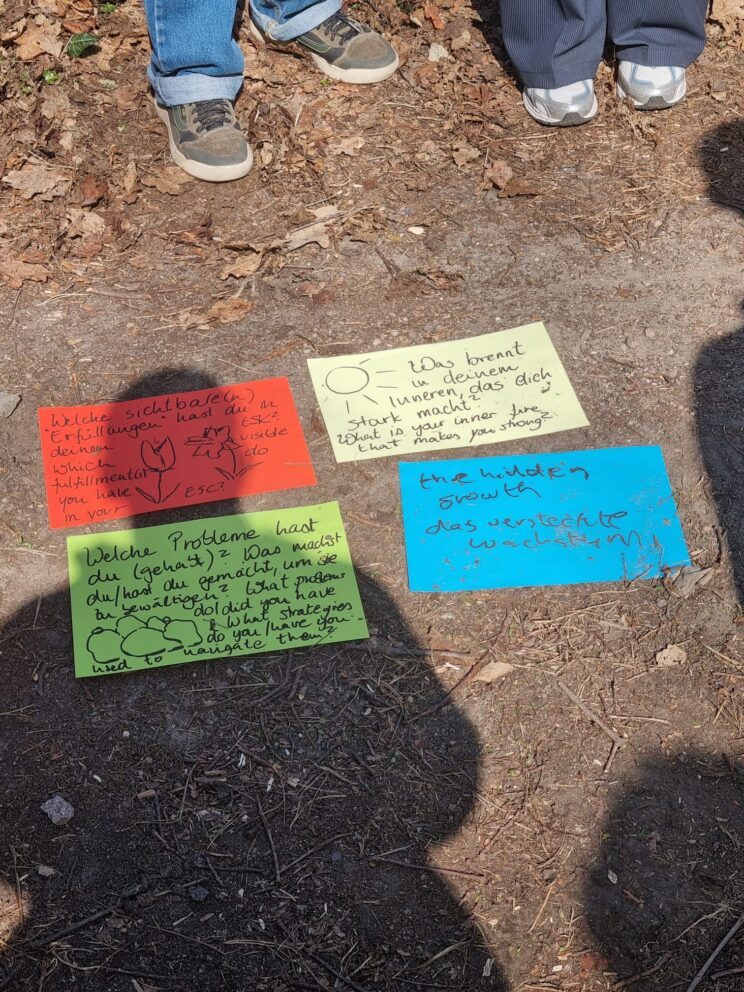 Welche sichtbare(n)
"Erfüllungen" hast du in
deinem ESC?
which visible
fulfillment(s) do
you have
in your ESC?
Was brennt
in deinem
Inneren, das dich
stark macht?
What is your inner fire
that makes you strong?
Welche Probleme hast
du (gehabt)? Was machst
du/hast du gemacht, um sie
zu bewältigen? What problems
do/did you have
& What strategies
do you/have you
used to navigate them?
the hidden
growth
das versteckte
Wachstum